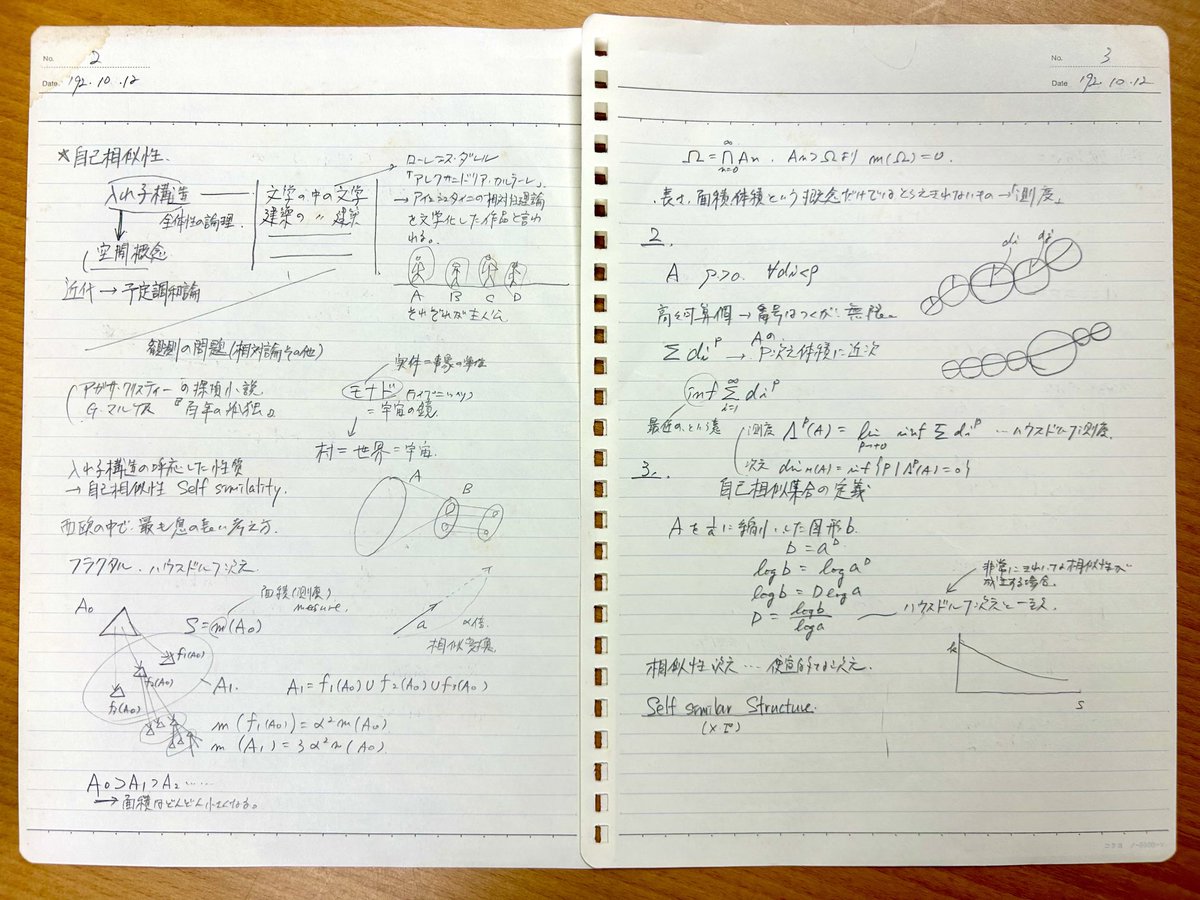 No. 2
Date '92.10.12
*自己相似性.
入れ子構造
全体性の論理.
空間概念
近代→予定調和論
文学の中の文学
建築の 〃 建築
ローレンス・ダレル
「アレクサンドリア・カルテット」
→アインシュタインの相対性理論
を文学化した作品と言わ
れる。
A B C D
それぞれが主人公.
観測の問題(相対論その他)
アガサ・クリスティーの探偵小説.
G.マルケス 『百年の孤独』
モナド(ライプニッツ)
=宇宙の鏡.
村=世界=宇宙.
入れ子構造の呼応した性質
→自己相似性 Self similality.
A
B
西欧の中で最も息の長い考え方.
フラクタル.ハウスドルフ次元.
面積(測度)
mesure.
A0
S=m(A0)
a
α倍.
相似変換.
f1(A0)
f2(A0)
f3(A0)
A1.
A1=f1(A0)∪f2(A0)∪f3(A0)
m(f1(A0))=α²m(A0)
m(A1)=3α²m(A0)
A0⊃A1⊃A2......
→面積はどんどん小さくなる。
No. 3
Date '92.10.12
Ω=∩An. An⊃Ωより m(Ω)=0.
∞
n=0
.長さ、面積体積という概念だけではとらえきれないもの→「測度」
2.
A ρ>0. ∀di<ρ
di
dj
高々可算個→番号はつくが無限.
Σdi^p → Aのp次元体積に近次
inf Σ di^p
∞
i=1
最近の、という意
測度 Λ^p(A)=lim inf Σdi^p …ハウスドルフ測度.
次元 dim H(A)=inf{P|Λ^p(A)=0}
3.
自己相似集合の定義
Aを1/aに縮小した図形b.
b=a^D
log b=log a^D
log b=D log a
D=log b/log a
非常にきれいな相似性が
成立する場合.
ハウスドルフ次元と一致.
相似性次元…便宜的な次元.
k
s
Self similar Structure.